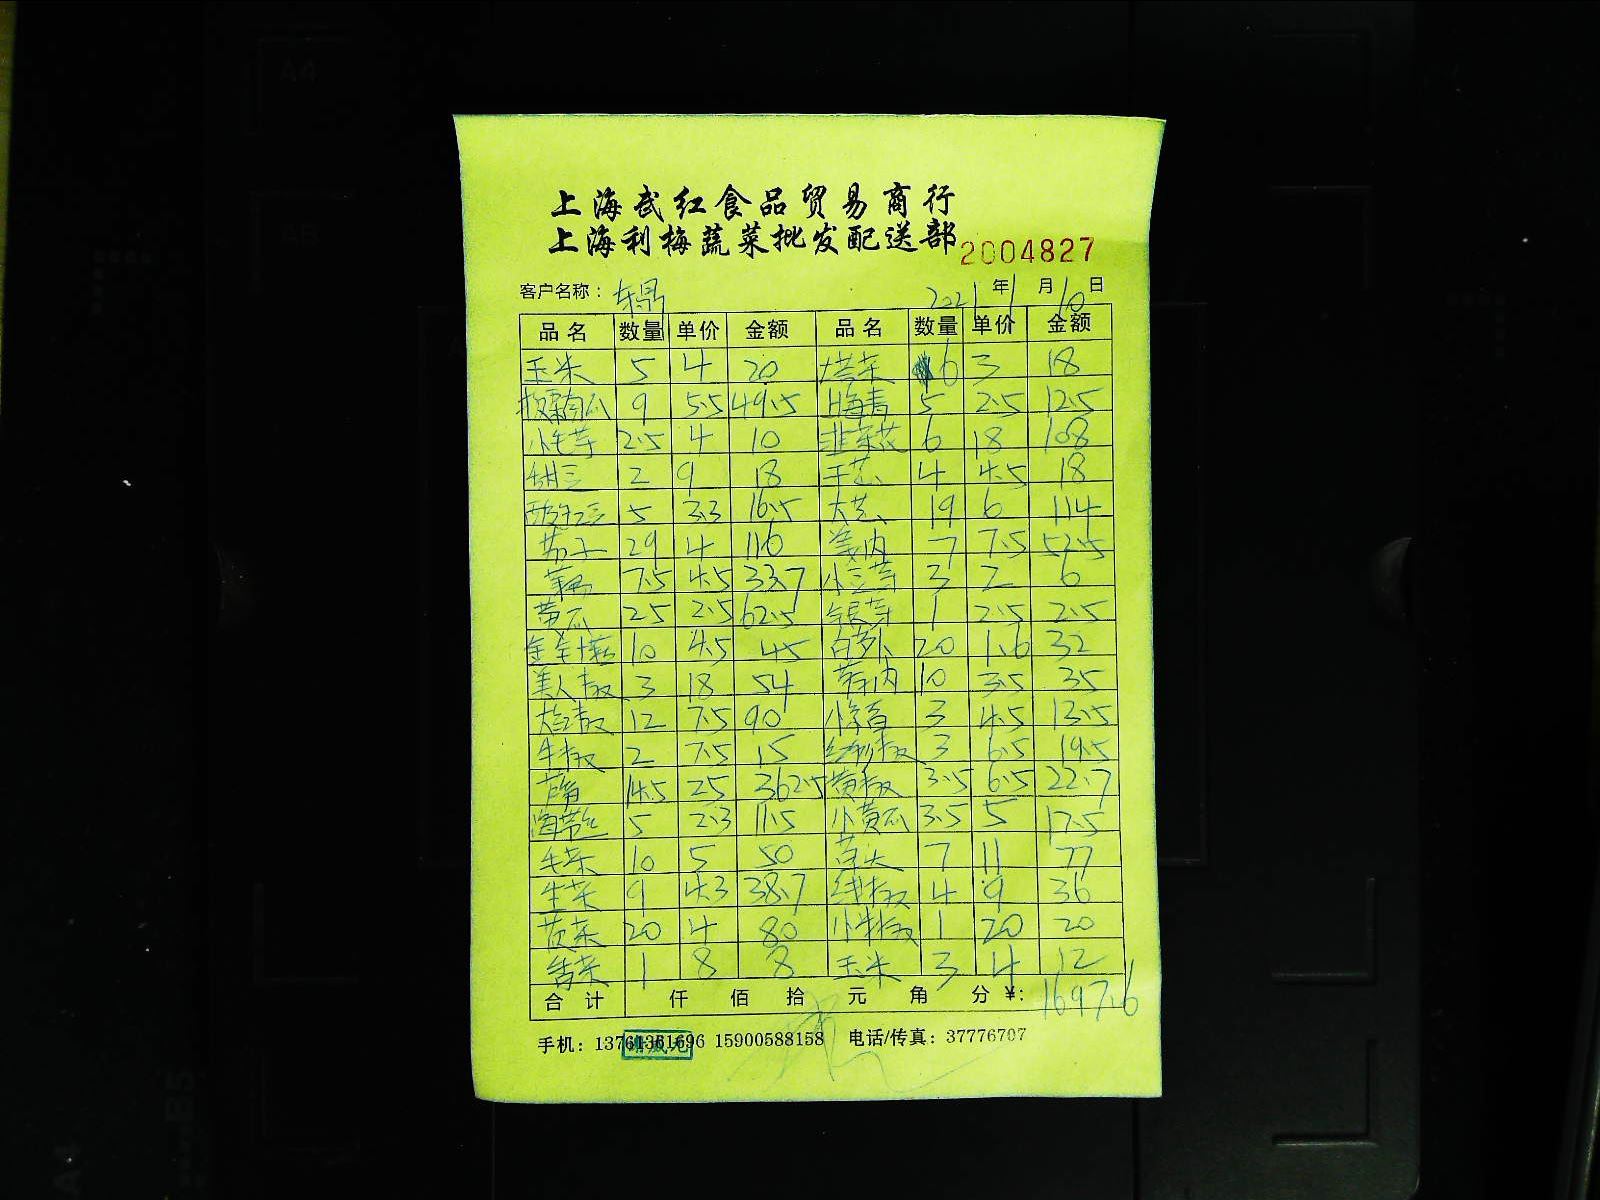 上海武红食品贸易商行
上海利梅蔬菜批发配送部 2004827
客户名称: 东鼎 2021年1月10日
品名 数量 单价 金额 品名 数量 单价 金额
玉米 5 4 20 塔菜 6 3 18
板栗南瓜 9 5.5 49.5 上海青 5 2.5 12.5
小毛芋 2.5 4 10 韭菜花 6 18 108
2 9 18 4 4.5 18
5 3.3 16.5 19 6 114
茄子 29 4 116 7 7.5 52.5
7.5 4.5 33.7 3 2 6
黄瓜 25 2.5 62.5 银芽 1 2.5 2.5
10 4.5 45 白萝卜 20 1.6 32
美人椒 3 18 54 10 3.5 35
大红椒 12 7.5 90 3 4.5 13.5
牛椒 2 7.5 15 红彩椒 3 6.5 19.5
14.5 25 362.5 黄椒 3.5 6.5 22.7
海带丝 5 2.3 11.5 小黄瓜 3.5 5 17.5
毛菜 10 5 50 7 11 77
生菜 9 4.3 38.7 线椒 4 9 36
20 4 80 小米椒 1 20 20
香菜 1 8 8 玉米 3 4 12
合计 仟 佰 拾 元 角 分 ¥: 1697.6
手机: 13761361696 15900588158 电话/传真: 37776707